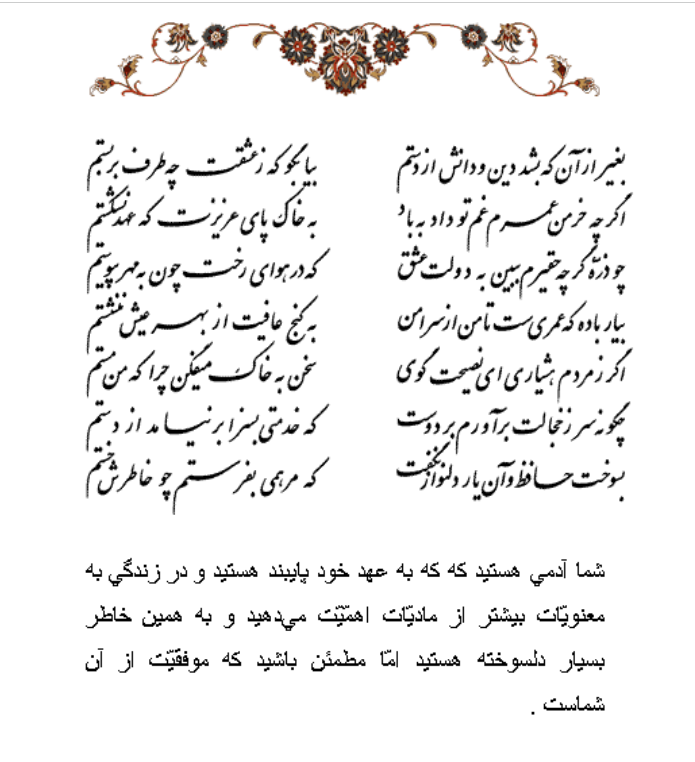 بغیر از آن که بشد دین و دانش از دستم بیا بگو که ز عشقت چه طرف بربستم
اگر چه خرمن عمرم غم تو داد به باد به خاک پای عزیزت که عهد نشکستم
چو ذرّه گر چه حقیرم ببین به دولت عشق که در هوای رخت چون به مهر پیوستم
بیار باده که عمریست تا من از سر امن به کنج عافیت از بهر عیش ننشستم
اگر ز مردم هشیاری ای نصیحت گوی سخن به خاک میفکن چرا که من مستم
چگونه سر ز خجالت برآورم بر دوست که خدمتی بسزا برنیامد از دستم
بسوخت حافظ و آن یار دلنواز نگفت که مرهمی بفرستم چو خاطرش خستم
شما آدمي هستيد كه كه به عهد خود پايبند هستيد و در زندگي به
معنويّات بيشتر از ماديّات اهمّيّت مي‌دهيد و به همين خاطر
بسيار دلسوخته هستيد امّا مطمئن باشيد كه موفقيّت از آن
شماست .